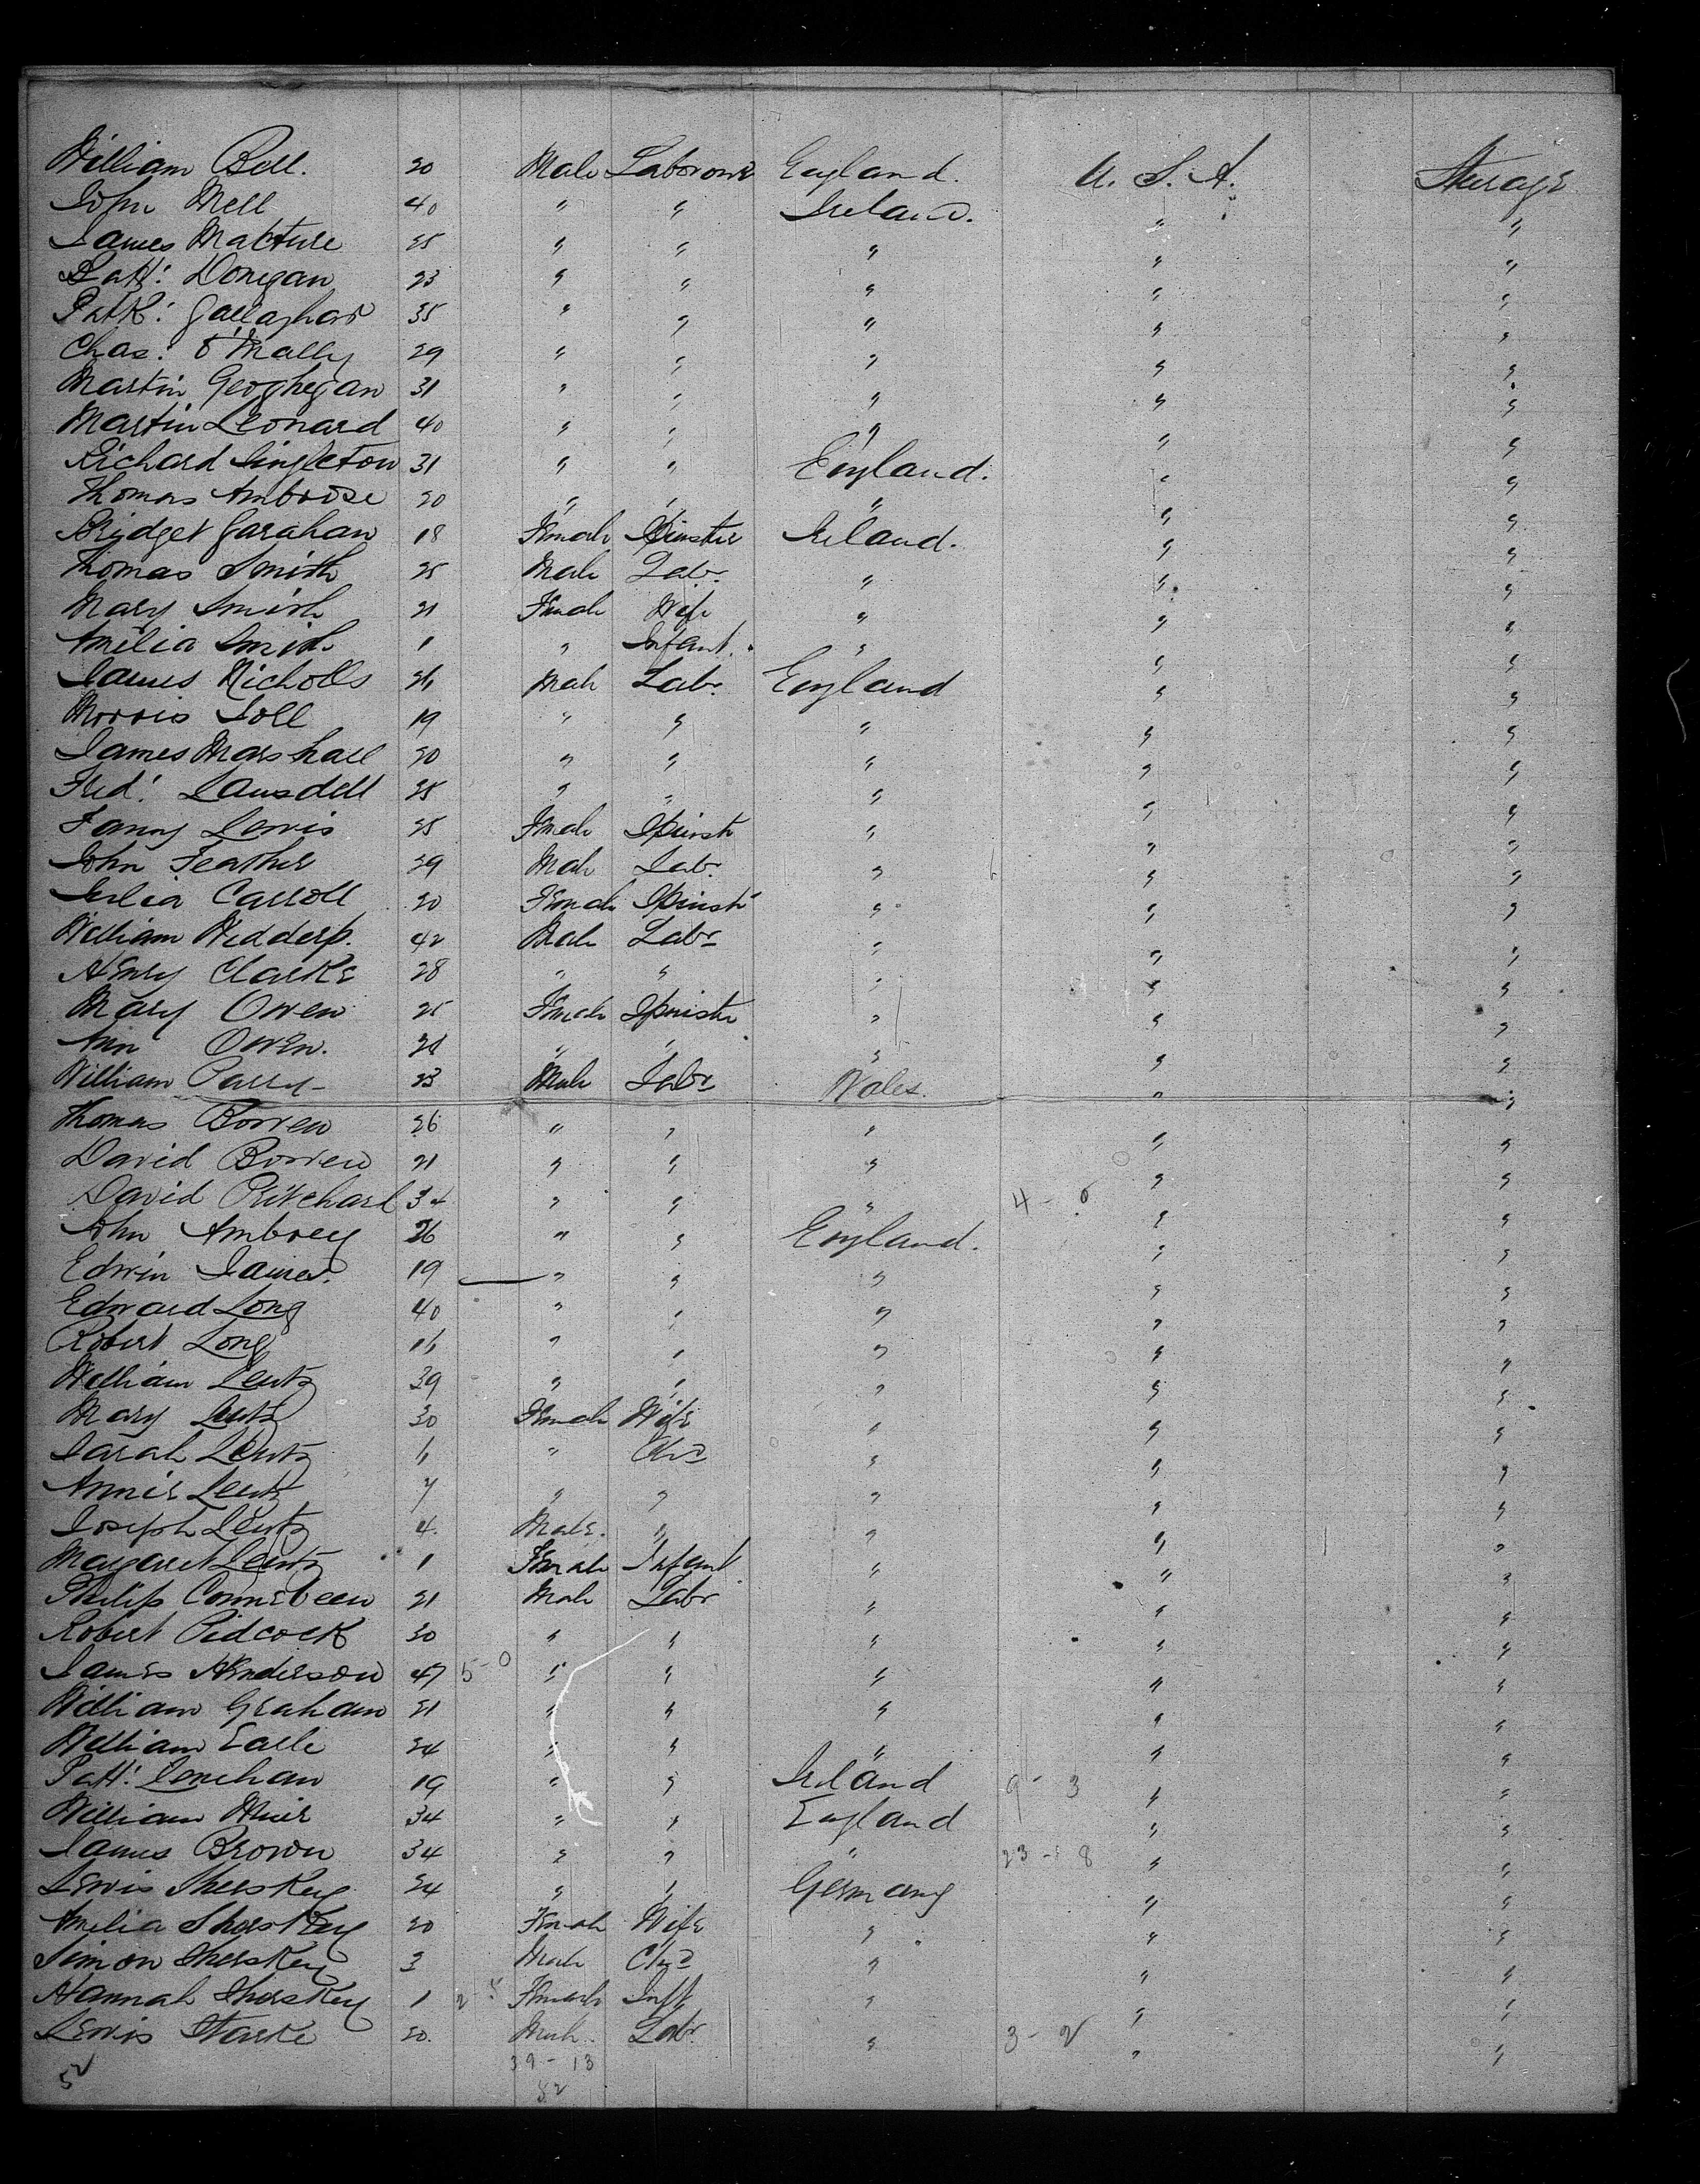 William Bell. 20 Male Labourer England. U. S. A. Steerage
John Mell 40 " " Ireland. " "
James 25 " " " " "
Patk: Donegan 23 " " " " "
Patk: Gallagher 35 " " " " "
Chas: O'Mally 29 " " " " "
Martin Geoghegan 31 " " " " "
Martin Leonard 40 " " " " "
Richard Singleton 31 " " England. " "
Thomas Ambrose 20 " " " " "
Bridget Garahan 18 Female Spinster Ireland. " "
Thomas Smith 25 Male Labr " " "
Mary Smith 21 Female Wife " " "
Amelia Smith 1 " Infant. " " "
James Nicholls 26 Male Labr England " "
Morris 19 " " " " "
James Marshall 20 " " " " "
Fred: Lansdell 25 " " " " "
Fanny Lewis 25 Female Spinstr " " "
John Feather 29 Male Labr " " "
Julia Carroll 20 Female Spinstr " " "
William Widdersp. 42 Male Labr " " "
Henry Clarke 28 " " " " "
Mary Owen 25 Female Spinstr " " "
Ann Owen. " " " " "
William Parry 23 Male Labr Wales. " "
Thomas Bowen 26 " " " " "
David Bowen 21 " " " " "
David Pritchard 34 " " " 4 - 0 " "
John Ambrey 26 " " England. " "
Edwin James. 19 " " " " "
Edward Long 40 " " " " "
Robert Long 16 " " " " "
William Lentz 39 " " " " "
Mary Lentz 30 Female Wife " " "
Sarah Lentz " Chd " " "
Annie Lentz 7 " " " " "
Joseph Lentz 4 Male. " " " "
Margaret Lentz 1 Female Infant " " "
Philip Connebeen 21 Male Labr " " "
Robert Pidcock 30 " " " " "
James Henderson 47 5-0 " " " " "
William Graham 21 " " " " "
William Earle 24 " " " " "
Patk: Lenehan 19 " " Ireland 9 - 3 " "
William Muir 34 " " England " "
James Brown 34 " " " 23 - 8 " "
Lewis Sherskey 24 " " Germany " "
Amelia Sherskey 20 Female Wife " " "
Simon Sherskey 3 Male Chd " " "
Hannah Sherskey 1 Female Inft " " "
Lewis Starke 20. Male. Labr " 3 - 2 " "
52 39 - 13
52